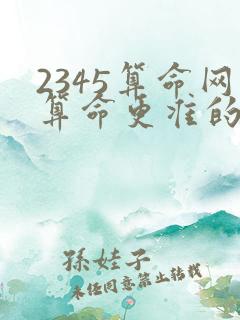 2345算命网
算命更准的
孫娃子
未经同意禁止转载